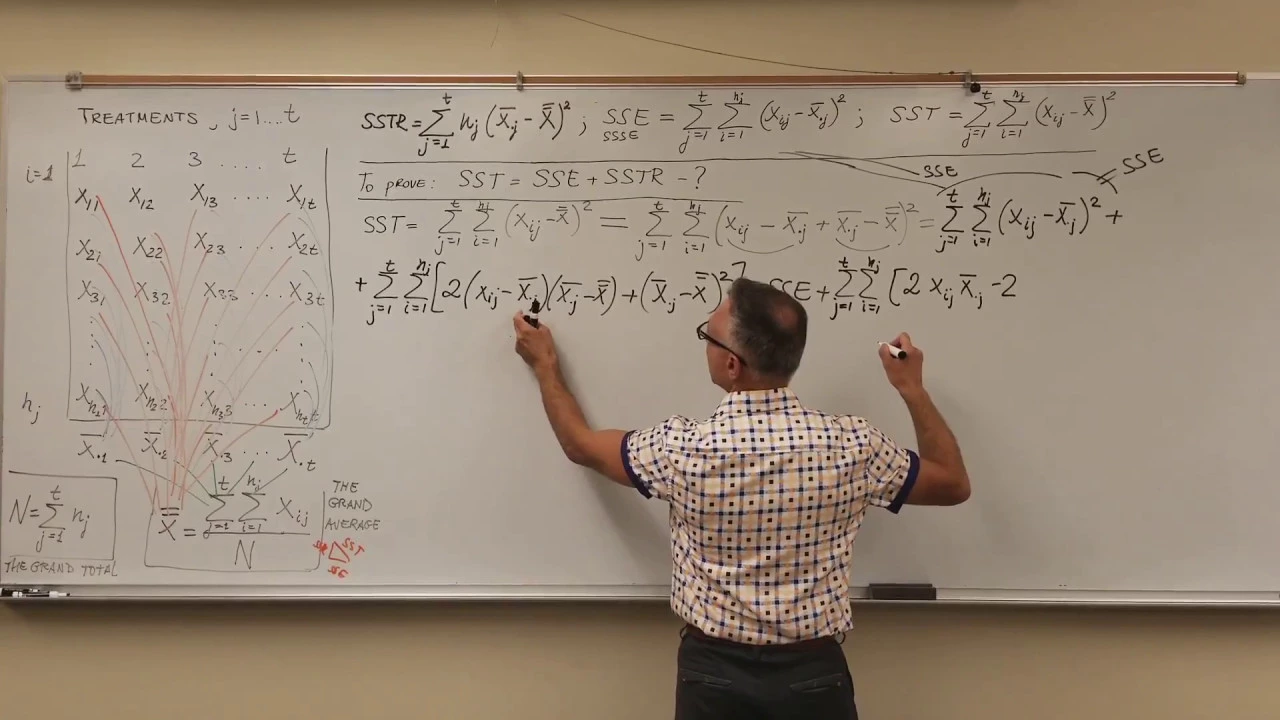 TREATMENTS, j=1....t
i=1 1 2 3 ..... t
X₁₁ X₁₂ X₁₃ .... X₁t
X₂₁ X₂₂ X₂₃ .... X₂t
X₃₁ X₃₂ X₃₃ .... X₃t
nj Xn₁1 Xn₂2 Xn₃3 ... Xntt
X̄.₁ X̄.₂ X̄.₃ .... X̄.t
N = Σ_{j=1}^{t} nj
THE GRAND TOTAL
X̿ = Σ_{j=1}^{t} Σ_{i=1}^{nj} Xij / N
THE
GRAND
AVERAGE
SST
SSE
SSTR = Σ_{j=1}^{t} nj (X̄.j − X̿)² ; SSE = Σ_{j=1}^{t} Σ_{i=1}^{nj} (xij − x̄.j)² ; SST = Σ_{j=1}^{t} Σ_{i=1}^{nj} (xij − x̿)²
SSSE
TO PROVE: SST = SSE + SSTR − ?
SSE
SSE
SST = Σ_{j=1}^{t} Σ_{i=1}^{nj} (xij − x̿)² = Σ_{j=1}^{t} Σ_{i=1}^{nj} (xij − x̄.j + x̄.j − x̿)² = Σ_{j=1}^{t} Σ_{i=1}^{nj} (xij − x̄.j)² +
+ Σ_{j=1}^{t} Σ_{i=1}^{nj} [2(xij − x̄.j)(x̄.j − x̿) + (x̄.j − x̿)²] SSE + Σ_{j=1}^{t} Σ_{i=1}^{nj} [2 xij x̄.j − 2